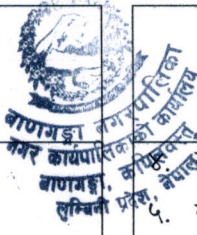 बाणगङ्गा नगरपालिका
नगर कार्यपालिकाको कार्यालय
बाणगङ्गा, कपिलवस्तु
लुम्बिनी प्रदेश, नेपाल
५.